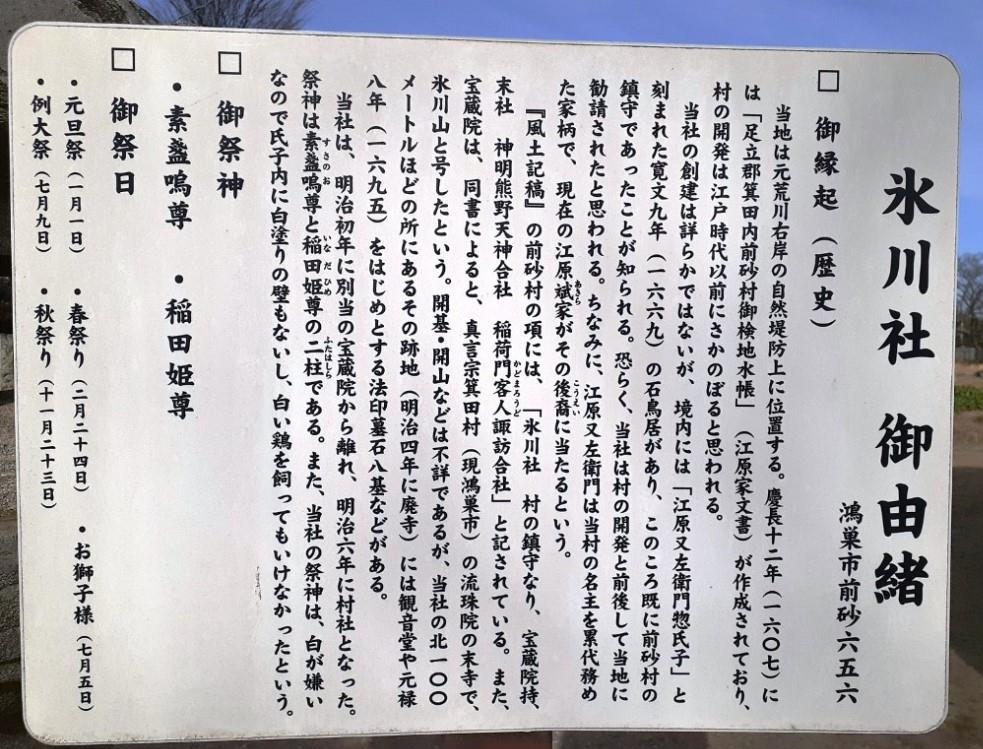 氷川社 御由緒
鴻巣市前砂六五六
□ 御縁起(歴史)
当地は元荒川右岸の自然堤防上に位置する。慶長十二年(一六〇七)に
は「足立郡箕田内前砂村御検地水帳」(江原家文書)が作成されており、
村の開発は江戸時代以前にさかのぼると思われる。
当社の創建は詳らかではないが、境内には「江原又左衛門惣氏子」と
刻まれた寛文九年(一六六九)の石鳥居があり、このころ既に前砂村の
鎮守であったことが知られる。恐らく、当社は村の開発と前後して当地に
勧請されたと思われる。ちなみに、江原又左衛門は当村の名主を累代務め
た家柄で、現在の江原斌家がその後裔に当たるという。
『風土記稿』の前砂村の項には、「氷川社 村の鎮守なり、宝蔵院持、
末社 神明熊野天神合社 稲荷門客人諏訪合社」と記されている。また、
宝蔵院は、同書によると、真言宗箕田村(現鴻巣市)の流珠院の末寺で、
氷川山と号したという。開基・開山などは不詳であるが、当社の北一〇〇
メートルほどの所にあるその跡地(明治四年に廃寺)には観音堂や元禄
八年(一六九五)をはじめとする法印墓石八基などがある。
当社は、明治初年に別当の宝蔵院から離れ、明治六年に村社となった。
祭神は素盞嗚尊と稲田姫尊の二柱である。また、当社の祭神は、白が嫌い
なので氏子内に白塗りの壁もないし、白い鶏を飼ってもいけなかったという。
□ 御祭神
・素盞嗚尊 ・稲田姫尊
□ 御祭日
・元旦祭(一月一日) ・春祭り(二月二十四日) ・お獅子様(七月五日)
・例大祭(七月九日) ・秋祭り(十一月二十三日)